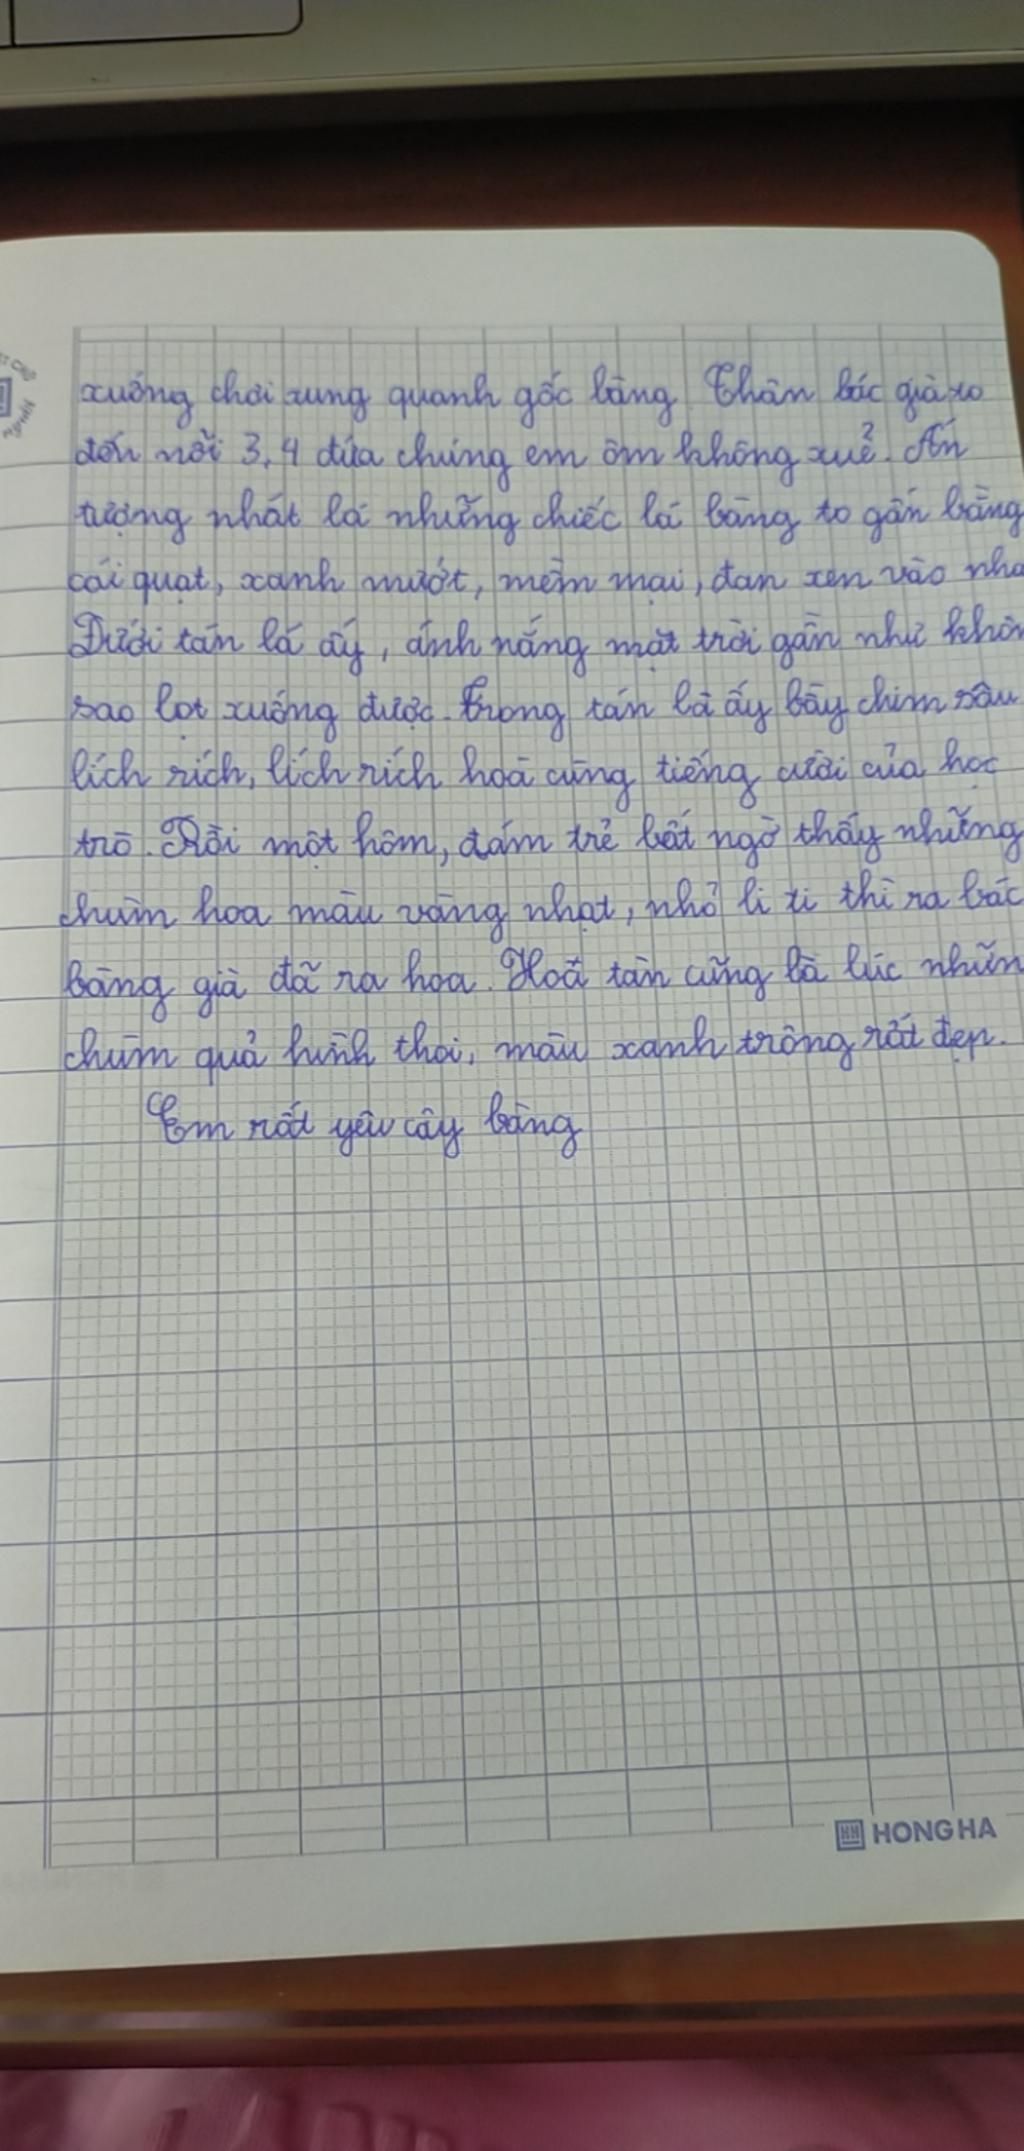 xuống chơi xung quanh gốc bàng. Thân bác già to
đến nỗi 3, 4 đứa chúng em ôm không xuể. Ấn
tượng nhất là những chiếc lá bàng to gần bằng
cái quạt, xanh mướt, mềm mại, đan xen vào nha
Dưới tán lá ấy, ánh nắng mặt trời gần như khôn
sao lọt xuống được. Trong tán lá ấy bầy chim sâu
lích rích, lích rích hoà cùng tiếng cười của học
trò. Rồi một hôm, đám trẻ bất ngờ thấy những
chùm hoa màu vàng nhạt, nhỏ li ti thì ra bác
bàng già đã ra hoa. Hoa tàn cũng là lúc nhữn
chùm quả hình thoi, màu xanh trông rất đẹp.
Em rất yêu cây bàng
HONG HA